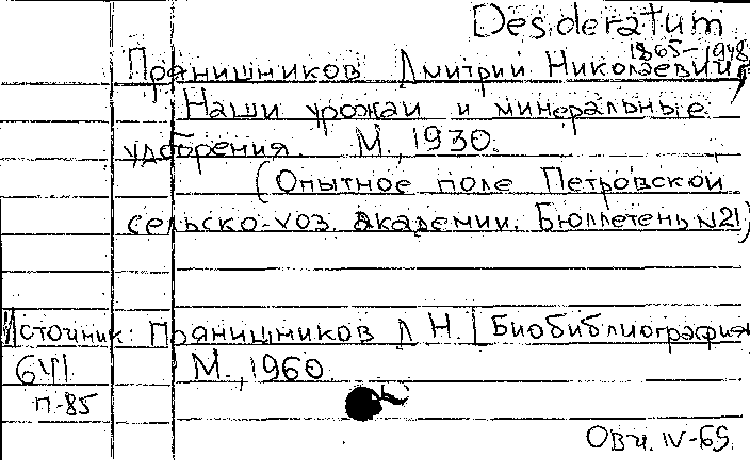 Desideratum
1865-1948
Прянишников Дмитрий Николаевич,
Наши урожаи и минеральные
удобрения. М., 1930.
(Опытное поле Петровской
сельско-хоз. академии. Бюллетень №21)
Источник: Прянишников Д.Н. | Биобиблиография
М., 1960
П-85
IV-69